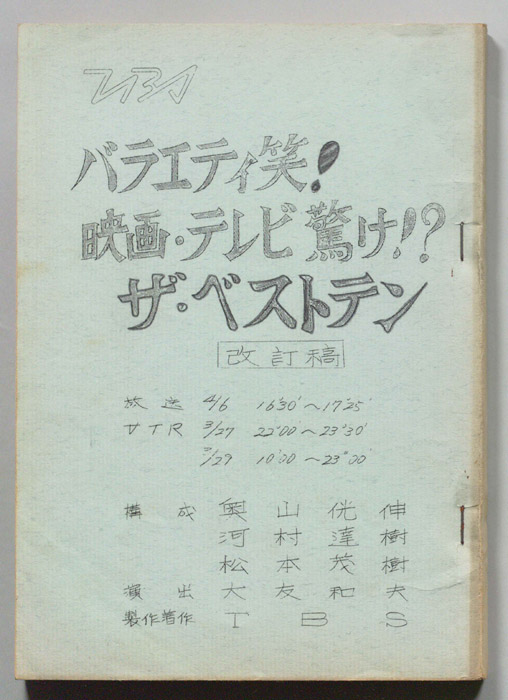 TBS
バラエティ笑!
映画・テレビ驚け!?
ザ・ベストテン
改訂稿
放送 4/6 16°30′〜17°25′
VTR 3/27 22°00〜23°30′
3/29 10°00〜23°00′
構成 奥山侊伸
河村達樹
松本茂樹
演出 大友和夫
製作著作 TBS